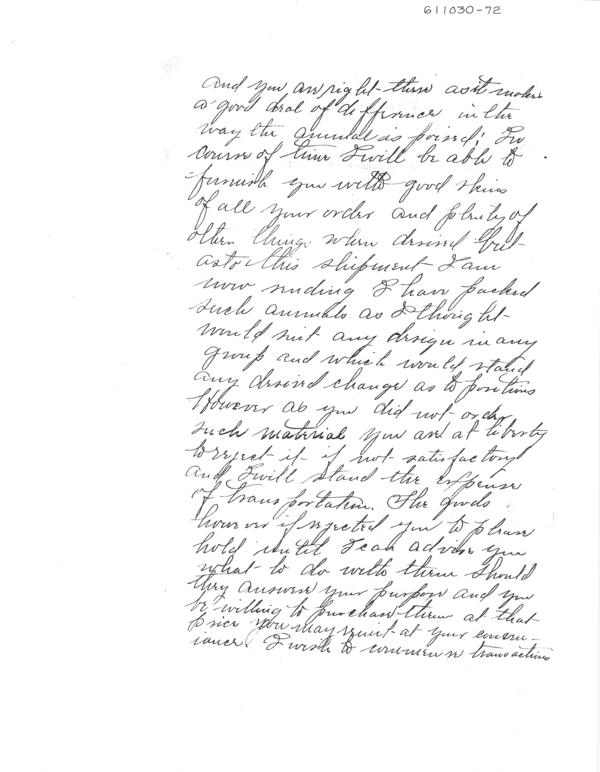 611030-72
and you are right there as it makes
a good deal of defference in the
way the animal is poised. In
course of time I will be able to
furnish you with good skins
of all your order and plenty of
other things when desired but
as to this shipment I am
now sending I have packed
such animals as I thought
would suit any design in any
group and which would stand
any desired change as to positions
However as you did not order
such material you are at liberty
to reject it if not satisfactory
and I will stand the expense
of transportation. The goods
however if rejected you to please
hold until I can advise you
what to do with them should
they answer your purpose and you
be willing to purchase them at that
price you may remit at your conven-
iance. I wish to commence transactions